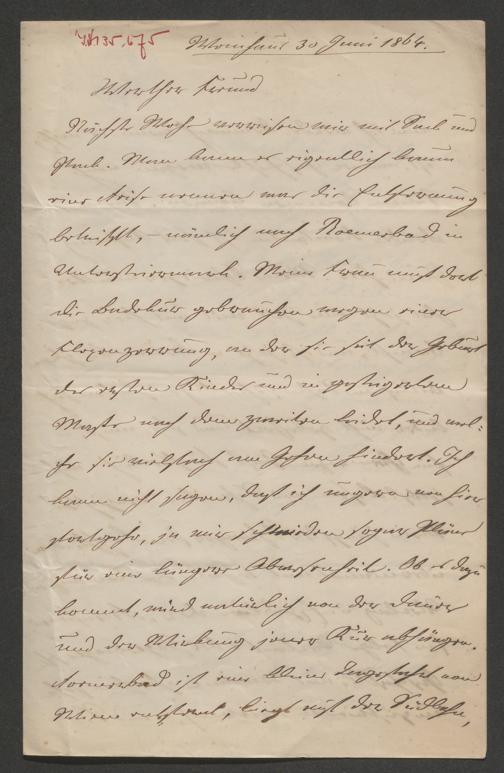 Weinhaus 30 Juni 1864.
Werther Freund
Nächste Woche verreisen wir mit Sack und
Pack. Man kann es eigentlich kaum
eine Reise nennen was die Entfernung
betrifft, – nämlich nach Roemerbad in
Untersteiermark. Meine Frau muß dort
die Badekur gebrauchen wegen einer
, an der sie seit der Geburt
des ersten Kindes und in gesteigertem
Maße nach dem zweiten leidet, und wel=
che sie vielfach am Gehen hindert. Ich
kann nicht sagen, daß ich ungern von hier
fortgehe, ja wir schmieden sogar Pläne
für eine längere Abwesenheit. Ob es dazu
kommt, wird natürlich von der Dauer
und der Wirkung jener Kur abhängen.
Roemerbad ist eine kleine Tagesfahrt von
Wien entfernt, liegt auf der Südbahn,